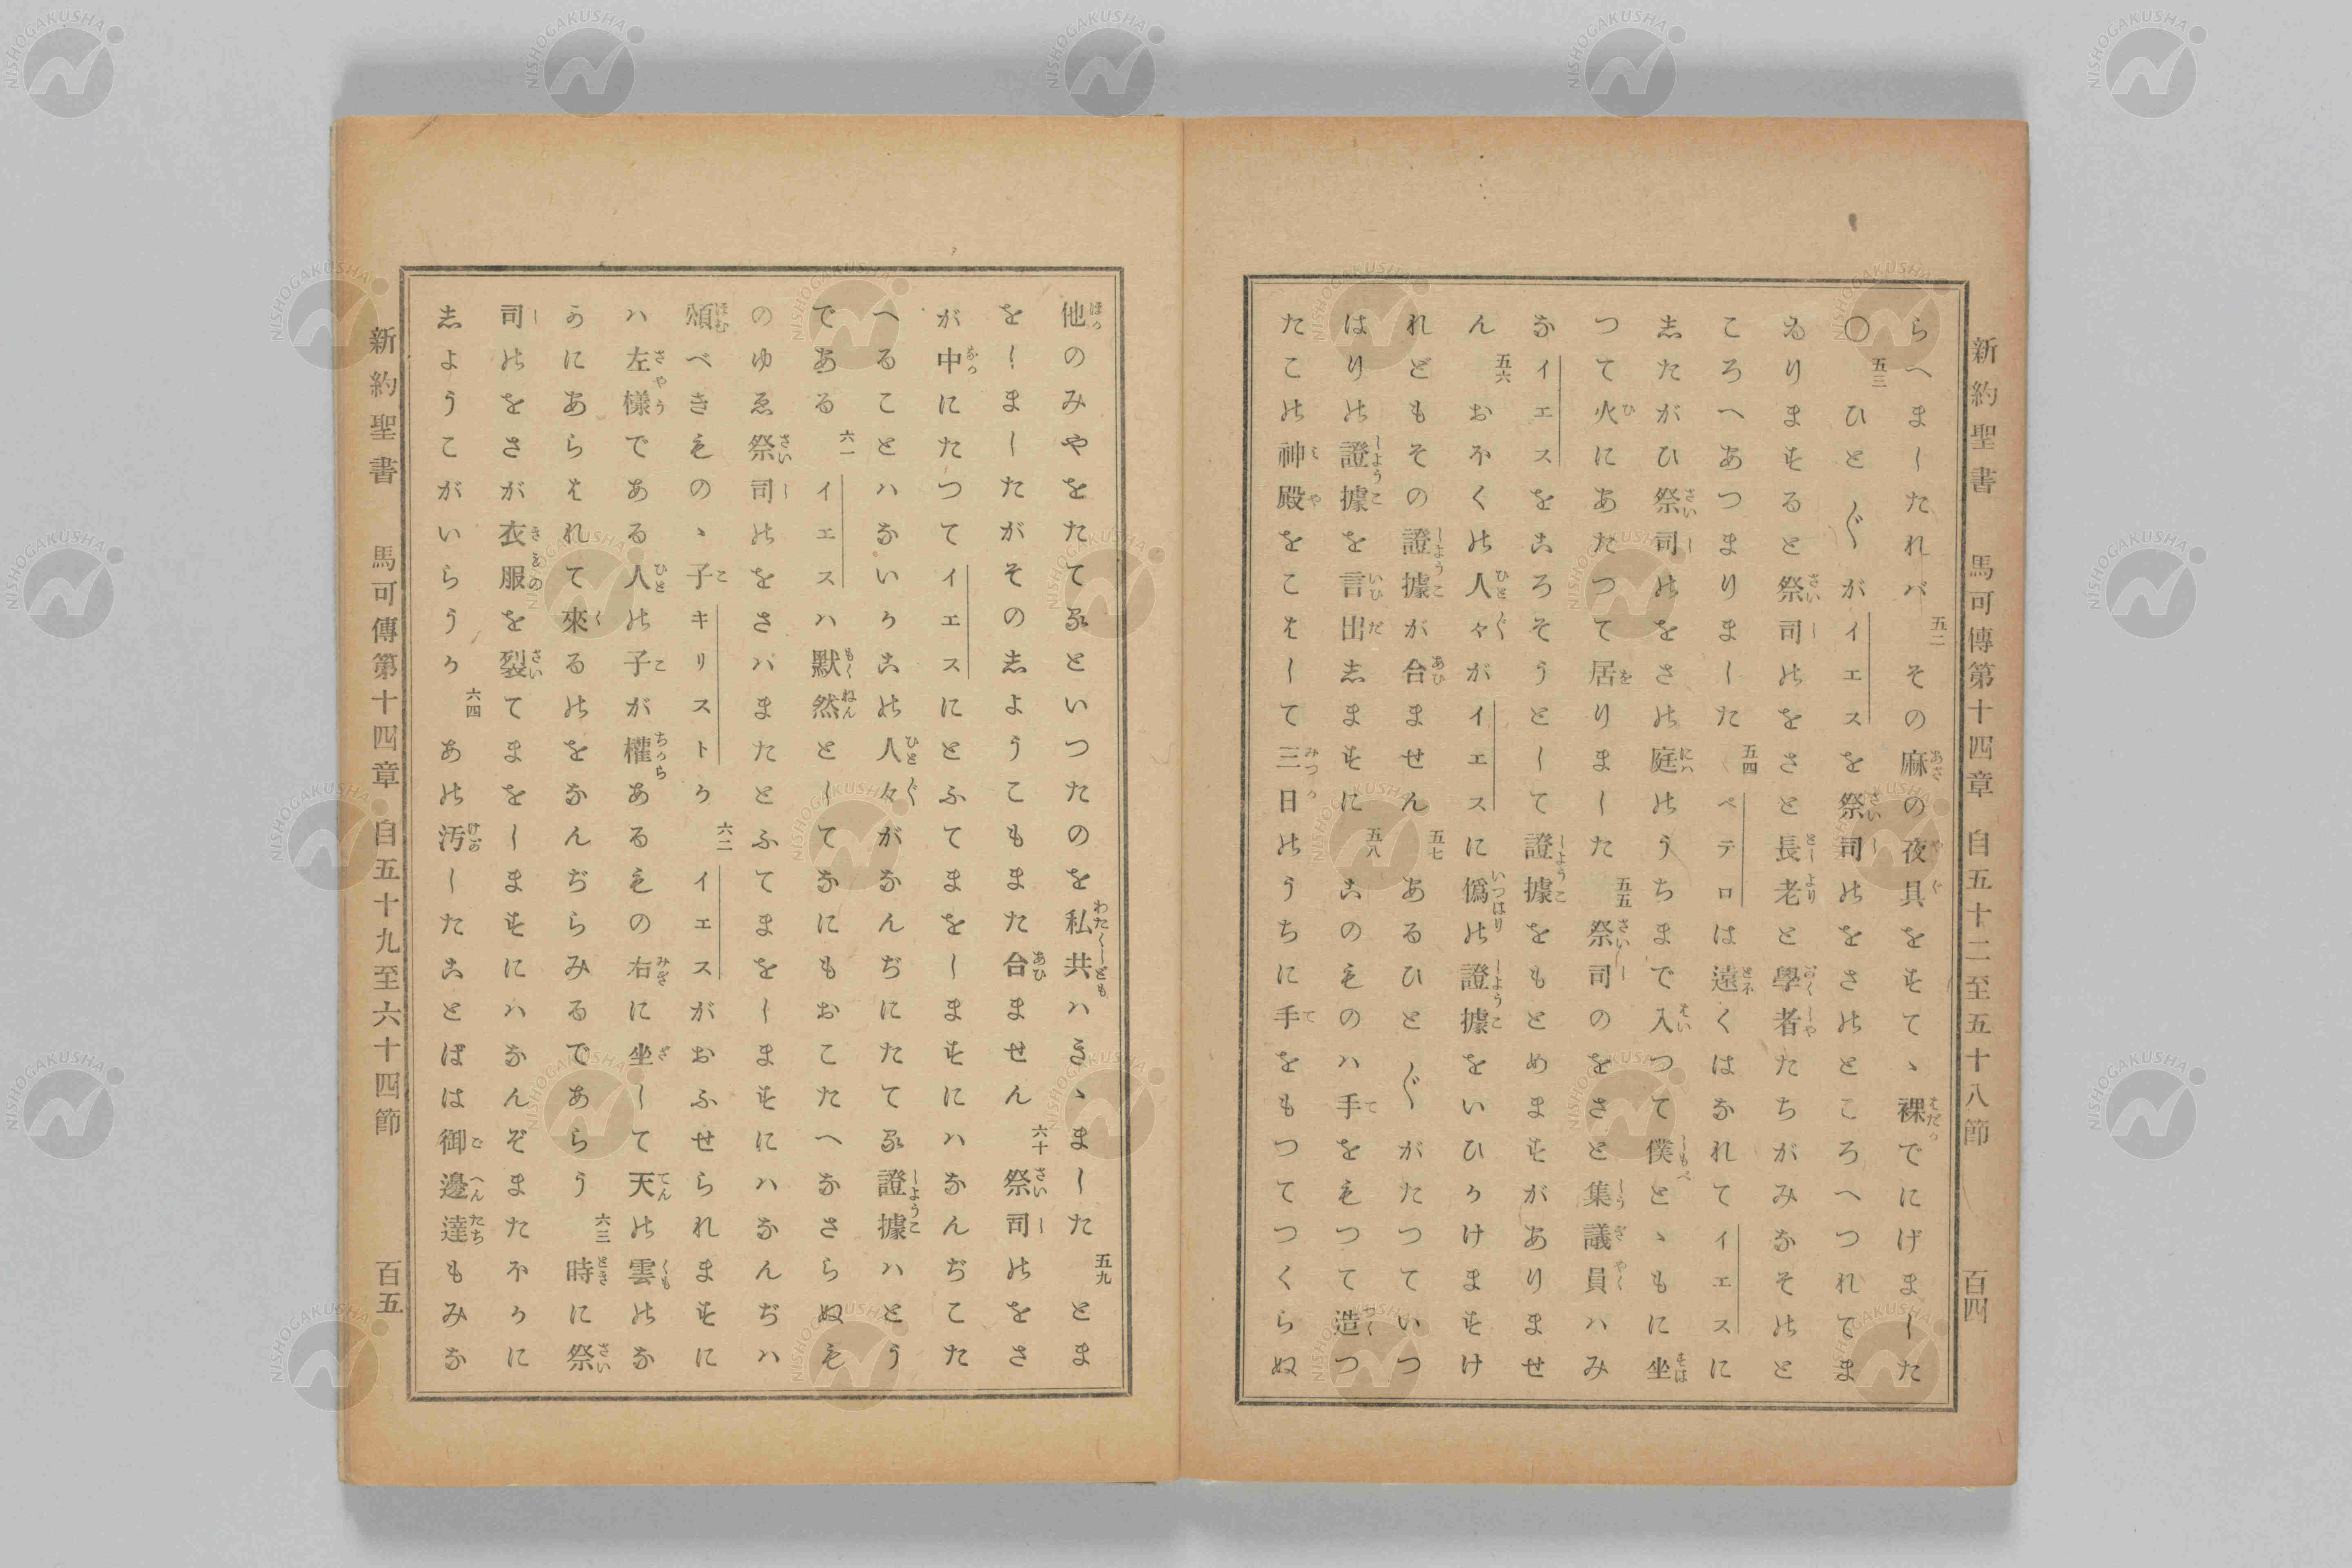 新約聖書 馬可傳第十四章 自五十二至五十八節 百四
らへましたれバ 五二 その麻の夜具をすてゝ裸でにげました
〇 五三 ひと〲がイエスを祭司のをさのところへつれてま
ゐりますると祭司のをさと長老と學者たちがみなそのと
ころへあつまりました 五四 ペテロは遠くはなれてイエスに
したがひ祭司のをさの庭のうちまで入つて僕とゝもに坐
つて火にあたつて居りました 五五 祭司のをさと集議員ハみ
なイエスをころそうとして證據をもとめますがありませ
ん 五六 おほくの人々がイエスに僞の證據をいひかけますけ
れどもその證據が合ません 五七 あるひと〲がたつていつ
はりの證據を言出しますに 五八 このものハ手をもつて造つ
たこの神殿をこはして三日のうちに手をもつてつくらぬ
他のみやをたてるといつたのを私共ハきゝました 五九 とま
をしましたがそのしようこもまた合ません 六十 祭司のをさ
が中にたつてイエスにとふてまをしますにハなんぢこた
へることハないかこの人々がなんぢにたてる證據ハとう
である 六一 イエスハ默然としてなにもおこたへなさらぬも
のゆゑ祭司のをさハまたとふてまをしますにハなんぢハ
頌べきものゝ子キリストか 六二 イエスがおふせられますに
ハ左樣である人の子が權あるものの右に坐して天の雲のな
かにあらはれて來るのをなんぢらみるであらう 六三 時に祭
司のをさが衣服を裂てまをしますにハなんぞまたほかに
しようこがいらうか 六四 あの汚したことばは御邊達もみな
新約聖書 馬可傳第十四章 自五十九至六十四節 百五